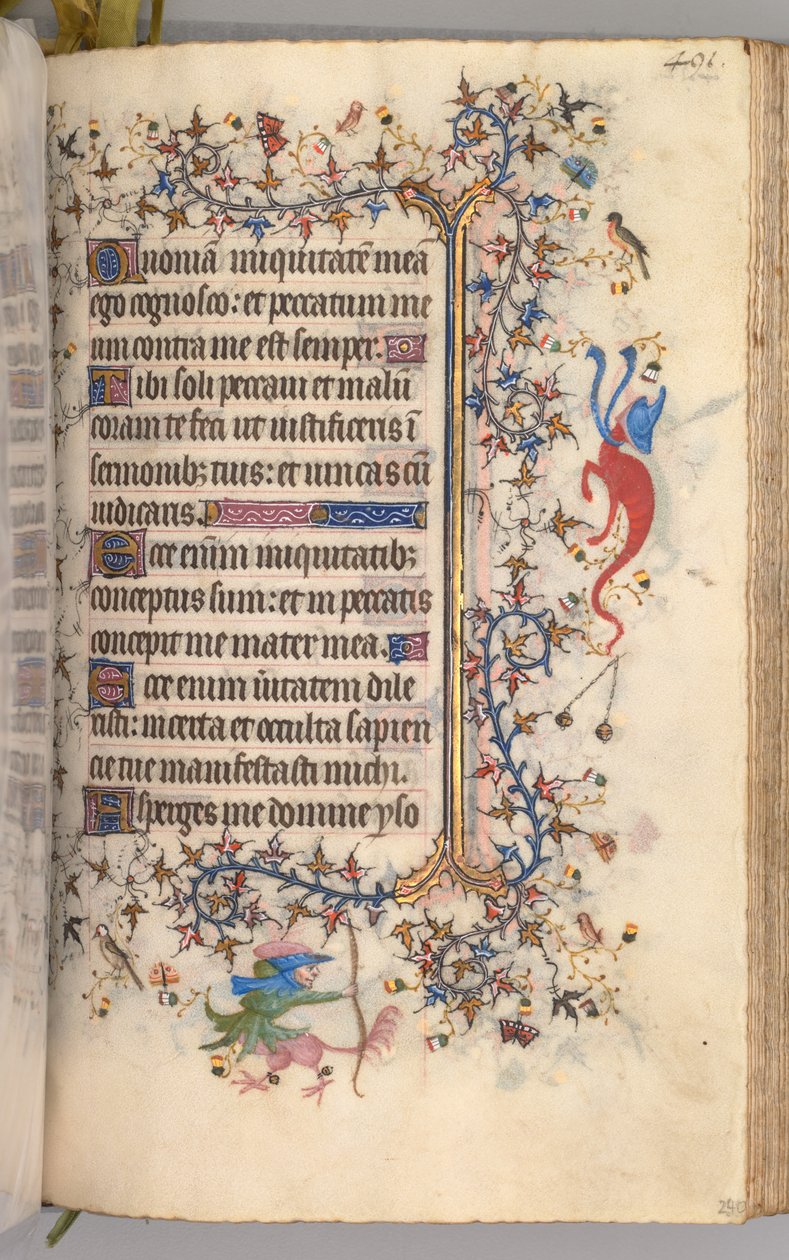 491.
Quoniā iniquitatē meā
ego cognosco: et peccatum me
um contra me est semper:
Tibi soli peccaui et malū
coram te feci ut iustificeris ī
sermonibꝫ tuis: et uincas cū
iudicaris.
Ecce eniʒ iniquitatibꝫ
conceptus sum: et in peccatis
concepit me mater mea.
Ecce enim ūitatem dile
xisti: incerta et occulta sapien
cie tue manifestasti michi.
Asperges me domine yso
240